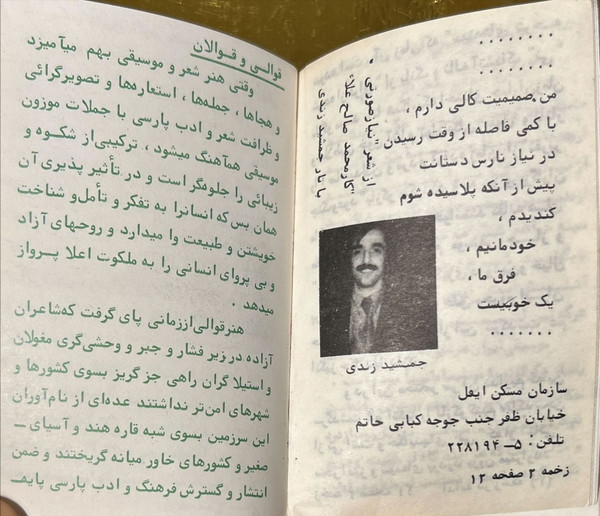 .......
.......
من صمیمیت کالی دارم ،
با کمی فاصله از وقت رسیدن
در نیاز نارس دستانت
پیش از آنکه پلاسیده شوم
کندیدم ،
خودمانیم ،
فرق ما ،
یک خوبیست
.......
از شعر "نیازصورتی"
کارمحمد صالح علاء
با یاد جمشید زندی
جمشید زندی
سازمان مسکن ایفل
خیابان ظفر جنب جوجه کبابی خاتم
تلفن : ۵ــ ۲۲۸۱۹۴
زخمه ۲ صفحه ۱۲
قوالــی و قــوالان
وقتی هنر شعر و موسیقی بهم میآمیزد
و هجاها ، جمله‌ها ، استعاره‌ها و تصویرگرائی
و ظرافت شعر و ادب پارسی با جملات موزون
موسیقی همآهنگ میشود ، ترکیبی از شکــوه و
زیبائی را جلوه‌گر است و در تأثیر پذیری آن
همان بس که انسانرا به تفکر و تأمل‌و شناخت
خویشتن و طبیعت وا میدارد و روحهای آزاد
و بی پروای انسانی را به ملکوت اعلا پــرواز
میدهد .
هنرقوالی‌اززمانی پای گرفت که‌شاعران
آزاده در زیر فشار و جبر و وحشی‌گری مغولان
و استیلا گران راهی جز گریز بسوی کشورها و
شهرهای امن‌تر نداشتند عده‌ای از نام‌آوران
این سرزمین بسوی شبه قاره هند و آسیای ــ
صغیر و کشورهای خاور میانه گریختند و ضمن
انتشار و گسترش فرهنگ و ادب پارسی پایه‍ــ